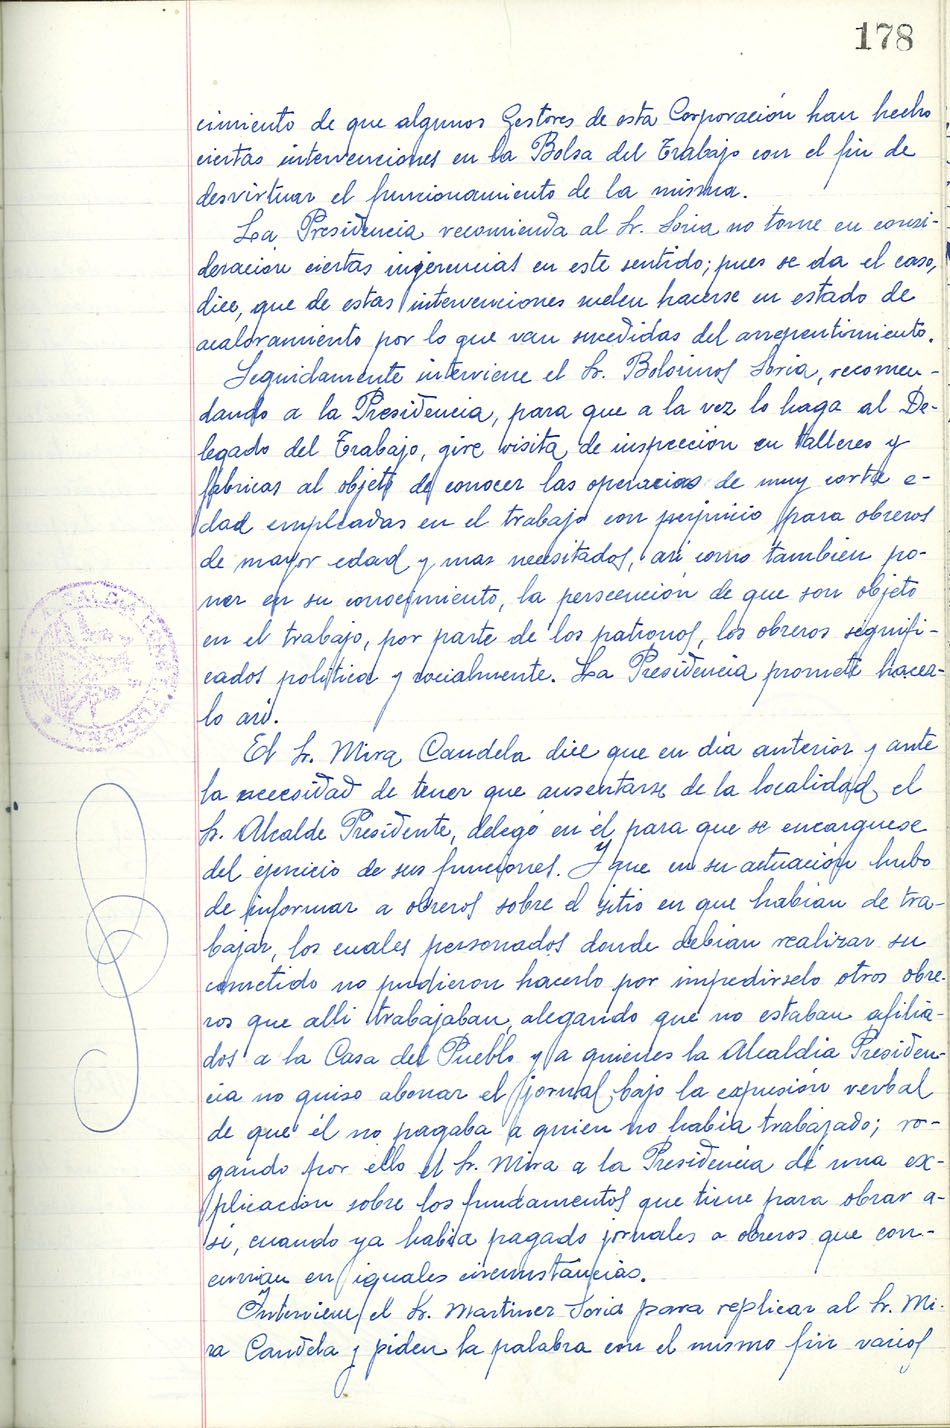 178
cimiento de que algunos Gestores de esta Corporación han hecho
ciertas intervenciones en la Bolsa del Trabajo con el fin de
desvirtuar el funcionamiento de la misma.
La Presidencia recomienda al Sr. Soria no tome en consi-
deración ciertas injerencias en este sentido; pues se da el caso,
dice, que de estas intervenciones suelen hacerse en estado de
acaloramiento por lo que van sucedidas del arrepentimiento.
Seguidamente interviene el Sr. Bolorinos Soria, recomen-
dando a la Presidencia, para que a la vez lo haga al De-
legado del Trabajo, gire visita de inspección en talleres y
fábricas al objeto de conocer las operarias de muy corta e-
dad empleadas en el trabajo con perjuicio para obreros
de mayor edad y mas necesitados, asi como tambien po-
ner en su conocimiento, la persecución de que son objeto
en el trabajo, por parte de los patronos, los obreros significi-
cados politica y socialmente. La Presidencia promete hacer-
lo asi.
El Sr. Mira Candela dice que en dia anterior y ante
la necesidad de tener que ausentarse de la localidad el
Sr. Alcalde Presidente, delegó en él para que se encarguese
del ejercicio de sus funciones. Y que en su actuación hubo
de informar a obreros sobre el sitio en que habian de tra-
bajar, los cuales personados donde debian realizar su
cometido no pudieron hacerlo por impedirselo otros obre-
ros que alli trabajaban, alegando que no estaban afilia-
dos a la Casa del Pueblo y a quienes la Alcaldia Presiden-
cia no quiso abonar el jornal bajo la expresión verbal
de que él no pagaba a quien no habia trabajado; ro-
gando por ello el Sr. Mira a la Presidencia dé una ex-
plicación sobre los fundamentos que tiene para obrar a-
sí, cuando ya habia pagado jornales a obreros que con-
currian en iguales circunstancias.
Interviene el Sr. Martinez Soria para replicar al Sr. Mi-
ra Candela y piden la palabra con el mismo fin varios
ALCALDIA CONSTITUCIONAL